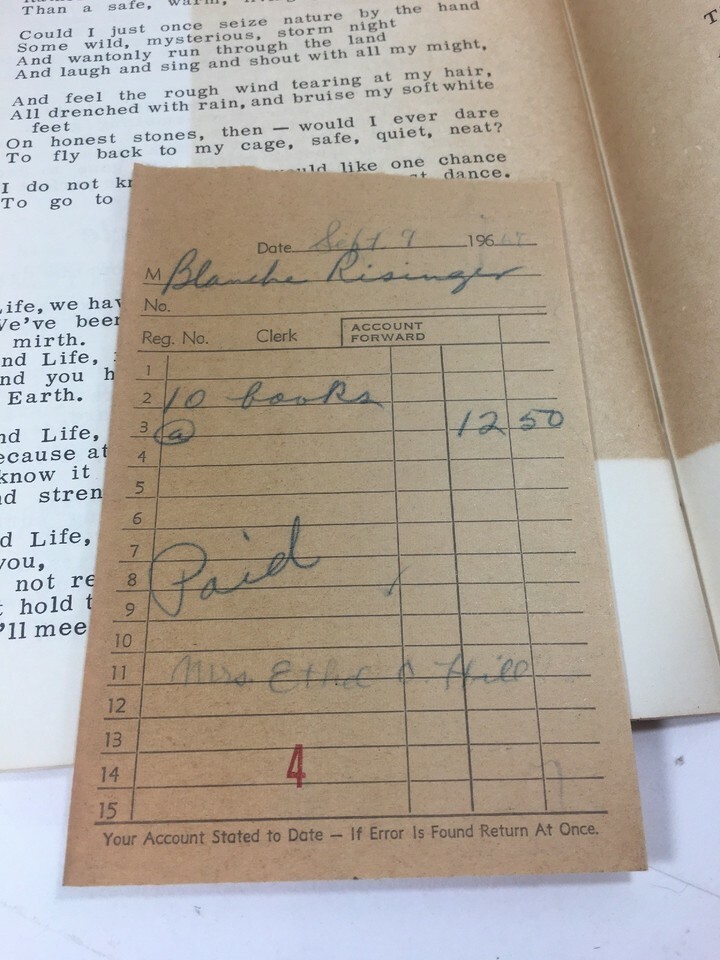 Than a safe, warm,
Could I just once seize nature by the hand
Some wild, mysterious, storm night
And wantonly run through the land
And laugh and sing and shout with all my might,
And feel the rough wind tearing at my hair,
All drenched with rain, and bruise my soft white
feet
On honest stones, then — would I ever dare
To fly back to my cage, safe, quiet, neat?
I do not like one chance
To go to dance.
Life, we
We've been
mirth.
nd Life,
nd you
Earth.
nd Life,
ecause at
know it
d stren
d Life,
you,
not re
hold
'll mee
Date Sept 7 196
M Blanche Risinger
No.
Reg. No. Clerk ACCOUNT FORWARD
1
2 10 books
3 @ 12 50
4
5
6
7
8 Paid
9
10
11 Mrs. Ethel C. Hill
12
13
14 4
15
Your Account Stated to Date — If Error Is Found Return At Once.